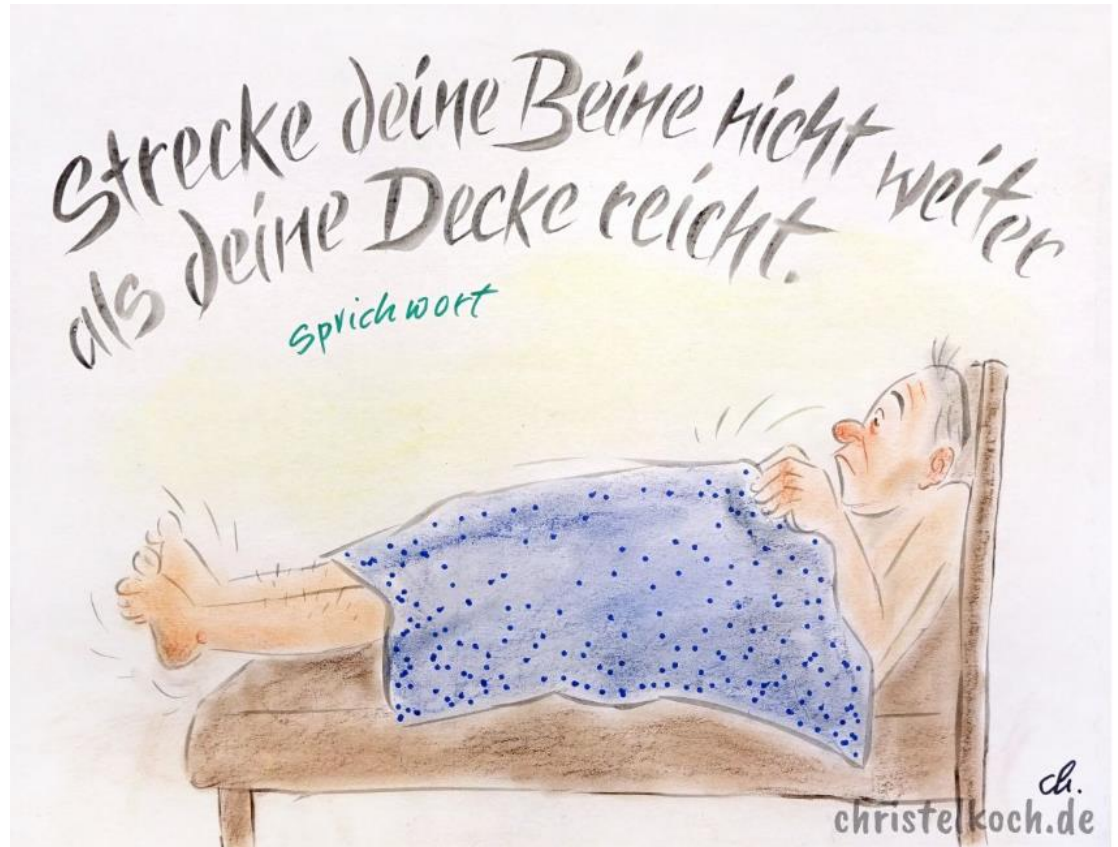 Strecke deine Beine nicht weiter
als deine Decke reicht.
Sprichwort
ch.
christelkoch.de